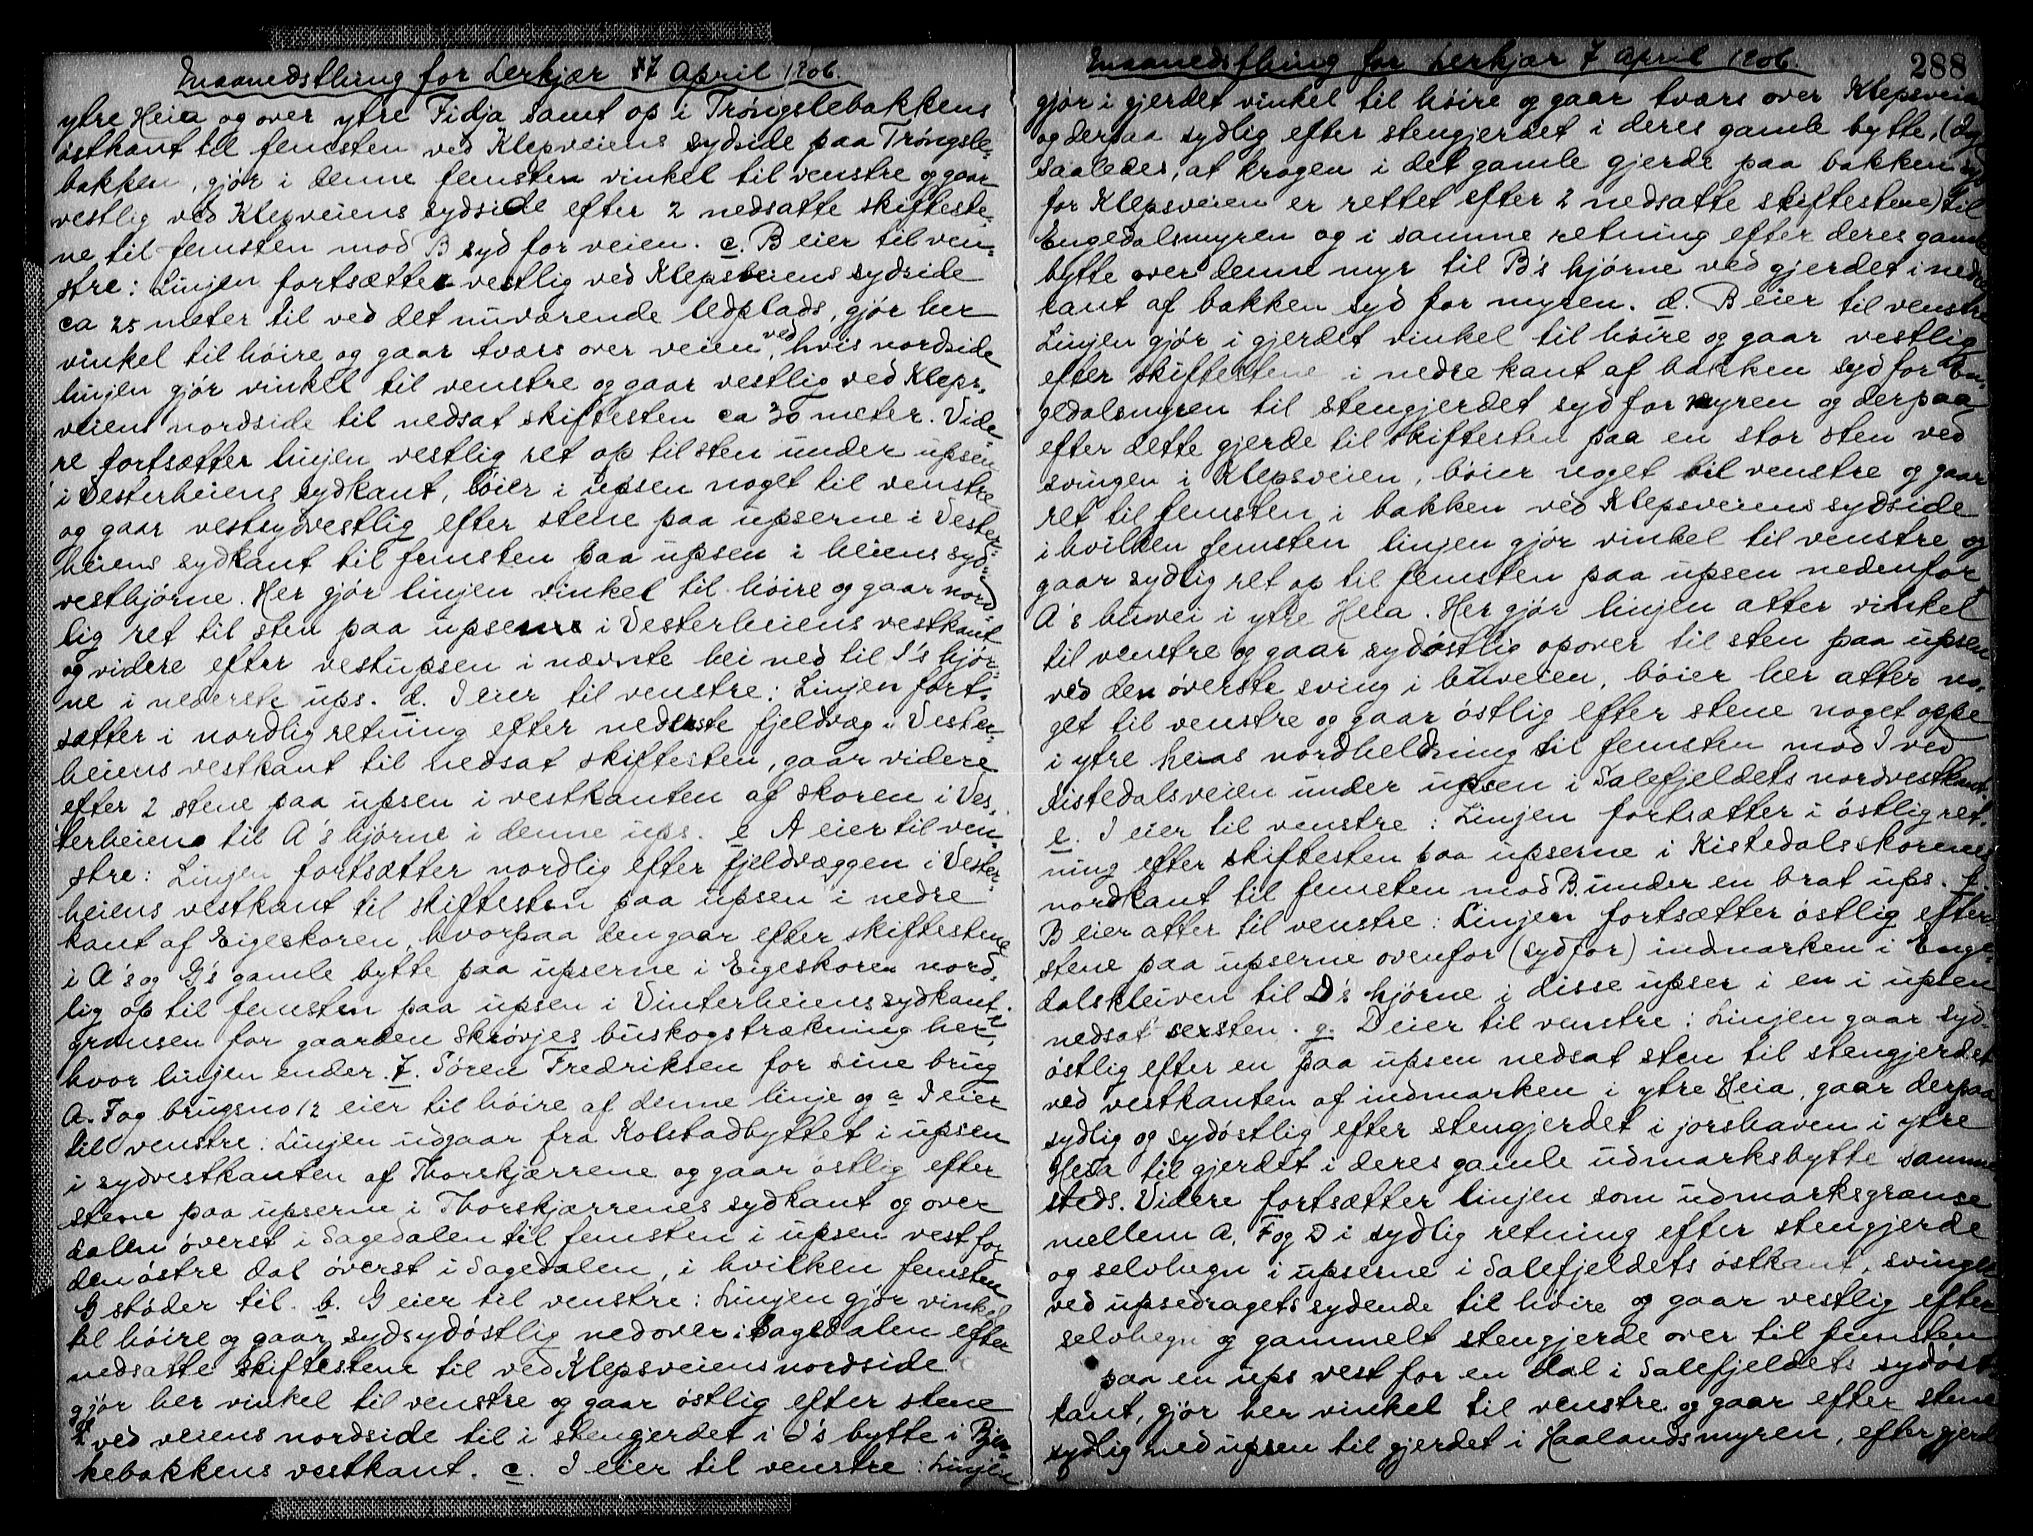 Enaanedstling for Lerkjær 7 April 1906.
ytre Heia og over ytre Fidja samt op i Trøngslebakkens
østkant til femsten ved Klepveiens sydside paa Trøngsle-
bakken, gjør i denne femsten vinkel til venstre og gaar
vestlig ved Klepveiens sydside efter 2 nedsatte skifteste-
ne til femsten mod B syd for veien. c. B eier til ven-
stre: Linjen fortsætter vestlig ved Klepsveiens sydside
ca 25 meter til ved det nuværende ledplads, gjør her
vinkel til høire og gaar tværs over veien, ved hvis nordside
linjen gjør vinkel til venstre og gaar vestlig ved Kleps-
veiens nordside til nedsat skiftesten ca 30 meter. Vide-
re fortsætter linjen vestlig ret op til sten under upsen
i Vesterheiens sydkant, bøier i upsen noget til venstre
og gaar vestsydvestlig efter stene paa upserne i Vester-
heiens sydkant til femsten paa upsen i heiens syd-
vesthjørne. Her gjør linjen vinkel til høire og gaar nord-
lig ret til sten paa upserne i Vesterheiens vestkant
og videre efter vestupsen i nævnte hei ned til I's hjør-
ne i nederste ups. d. I eier til venstre: Linjen fort-
sætter i nordlig retning efter nederste fjeldvæg i Vester-
heiens vestkant til nedsat skiftesten, gaar videre
efter 2 stene paa upsen i vestkanten af skoren i Ves-
terheien til A's hjørne i denne ups. e A eier til ven-
stre: Linjen fortsætter nordlig efter fjeldvæggen i Vester-
heiens vestkant til skiftesten paa upsen i nedre
kant af Eigeskoren, hvorpaa den gaar efter skiftestene
i A's og G's gamle bytte paa upserne i Eigeskoren nord-
lig op til femsten paa upsen i Vinterheiens sydkant i
grænsen for gaarden Skrøvjes buskogstrækning her,
hvor linjen ender. 7. Søren Fredriksen for sine brug
A. F og brugsno 12 eier til høire af denne linje og a D eier
til venstre: Linjen udgaar fra Kolstadbyttet i upsen
i sydvestkanten af Thorskjærrene og gaar østlig efter
stene paa upserne i Thorskjærrenes sydkant og over
dalen øverst i Sagedalen til femsten i upsen vest for
den østre dal øverst i Sagedalen, i hvilken femsten
G støder til. b. G eier til venstre: Linjen gjør vinkel
til høire og gaar sydsydøstlig nedover i Sagedalen efter
nedsatte skiftestene til ved Klepsveiens nordside
gjør her vinkel til venstre og gaar østlig efter stene
ved veiens nordside til i stengerdet i I's bytte i Bjer-
kebakkens vestkant. c. I eier til venstre: Linjen
Enaanedstling for Lerkjær 7 April 1906.
288
gjør i gjerdet vinkel til høire og gaar tværs over Klepsveien
og derpaa sydlig efter stengjerdet i deres gamle bytte, (dog
saaledes, at krogen i det gamle gjerde paa bakken syd
for Klepsveien er rettet efter 2 nedsatte skiftestene) til
Engedalsmyren og i samme retning efter deres gamle
bytte over denne myr til B's hjørne ved gjerdet i nedre
kant af bakken syd for myren. d. B eier til venstre
Linjen gjør i gjerdet vinkel til høire og gaar vestlig
efter skiftestene i nedre kant af bakken syd for En-
gedalsmyren til stengjerdet syd for myren og derpaa
efter dette gjerde til skiftesten paa en stor sten ved
svingen i Klepsveien, bøier noget til venstre og gaar
ret til femsten i bakken ved Klepsveiens sydside
i hvilken femsten linjen gjør vinkel til venstre og
gaar sydlig ret op til femsten paa upsen nedenfor
A's buvei i ytre Heia. Her gjør linjen atter vinkel
til venstre og gaar sydøstlig opover til sten paa upsen
ved den øverste sving i buveien, bøier her atter no-
get til venstre og gaar østlig efter stene noget oppe
i ytre heias nordheldning til femsten mod I ved
Kistedalsveien under upsen i Salefjeldets nordvestkant.
e. I eier til venstre: Linjen fortsætter i østlig ret-
ning efter skiftesten paa upserne i Kistedalsskorenes
nordkant til femsten mod B. under en brat ups. f.
B eier atter til venstre: Linjen fortsætter østlig efter
stene paa upserne ovenfor (sydfor) indmarken i Enge-
dalskleiven til D's hjørne i disse upser i en i upsen
nedsat sexsten. g. D eier til venstre: Linjen gaar syd-
østlig efter en paa upsen nedsat sten til stengjerdet
ved vestkanten af indmarken i ytre Heia, gaar derpaa
sydlig og sydøstlig efter stengjerdet i jorshaven i ytre
Heia til gjerdet i deres gamle udmarksbytte samme
steds. Videre fortsætter linjen som udmarksgrænse
mellem A, F og D i sydlig retning efter stengjerde
og selvhegn i upserne i Salefjeldets østkant, svinger
ved upsedragets sydende til høire og gaar vestlig efter
selvhegn og gammelt stengjerde over til femsten
paa en ups vest for en dal i Salefjeldets sydøst-
kant, gjør her vinkel til venstre og gaar efter stene
sydlig ned upsen til gjerdet i Haalandsmyren, efter gjerd